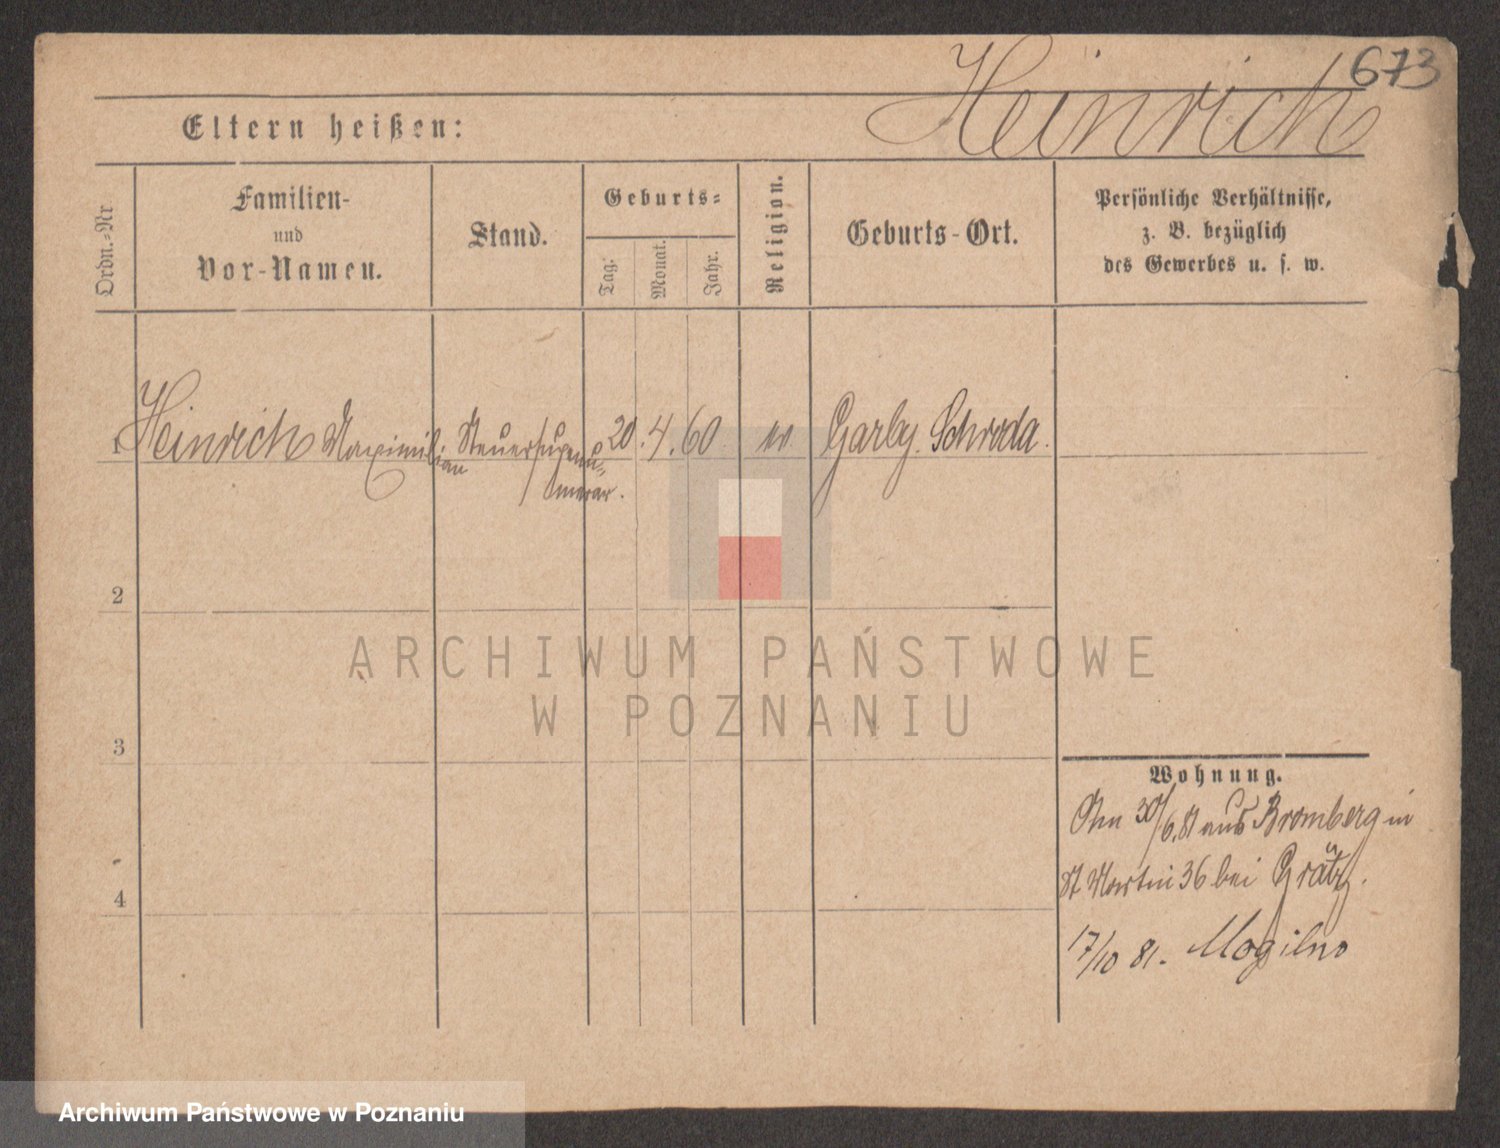 673
Heinrich
Eltern heißen:
Ordn.-Nr
Familien-
und
Vor-Namen.
Stand.
Geburts-
Tag:
Monat.
Jahr.
Religion.
Geburts-Ort.
Persönliche Verhältnisse,
z. B. bezüglich
des Gewerbes u. s. w.
1 Heinrich Maximilian Steuersupernu- 20. 4. 60 Garby. Schroda.
merar.
2
3
4
ARCHIWUM PAŃSTWOWE
W POZNANIU
Wohnung.
30/6.81 aus Bromberg in
St Martin 36 bei Grätz.
17/10 81. Mogilno
Archiwum Państwowe w Poznaniu